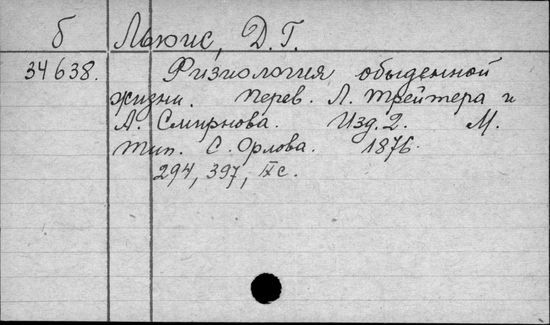 б Льюис, Д. Г.
34638. Физиология обыденной
жизни. Перев. Л. Трейтера и
А. Смирнова. Изд. 2. М.
Тип. С. Орлова. 1876.
294, 397, IX с.